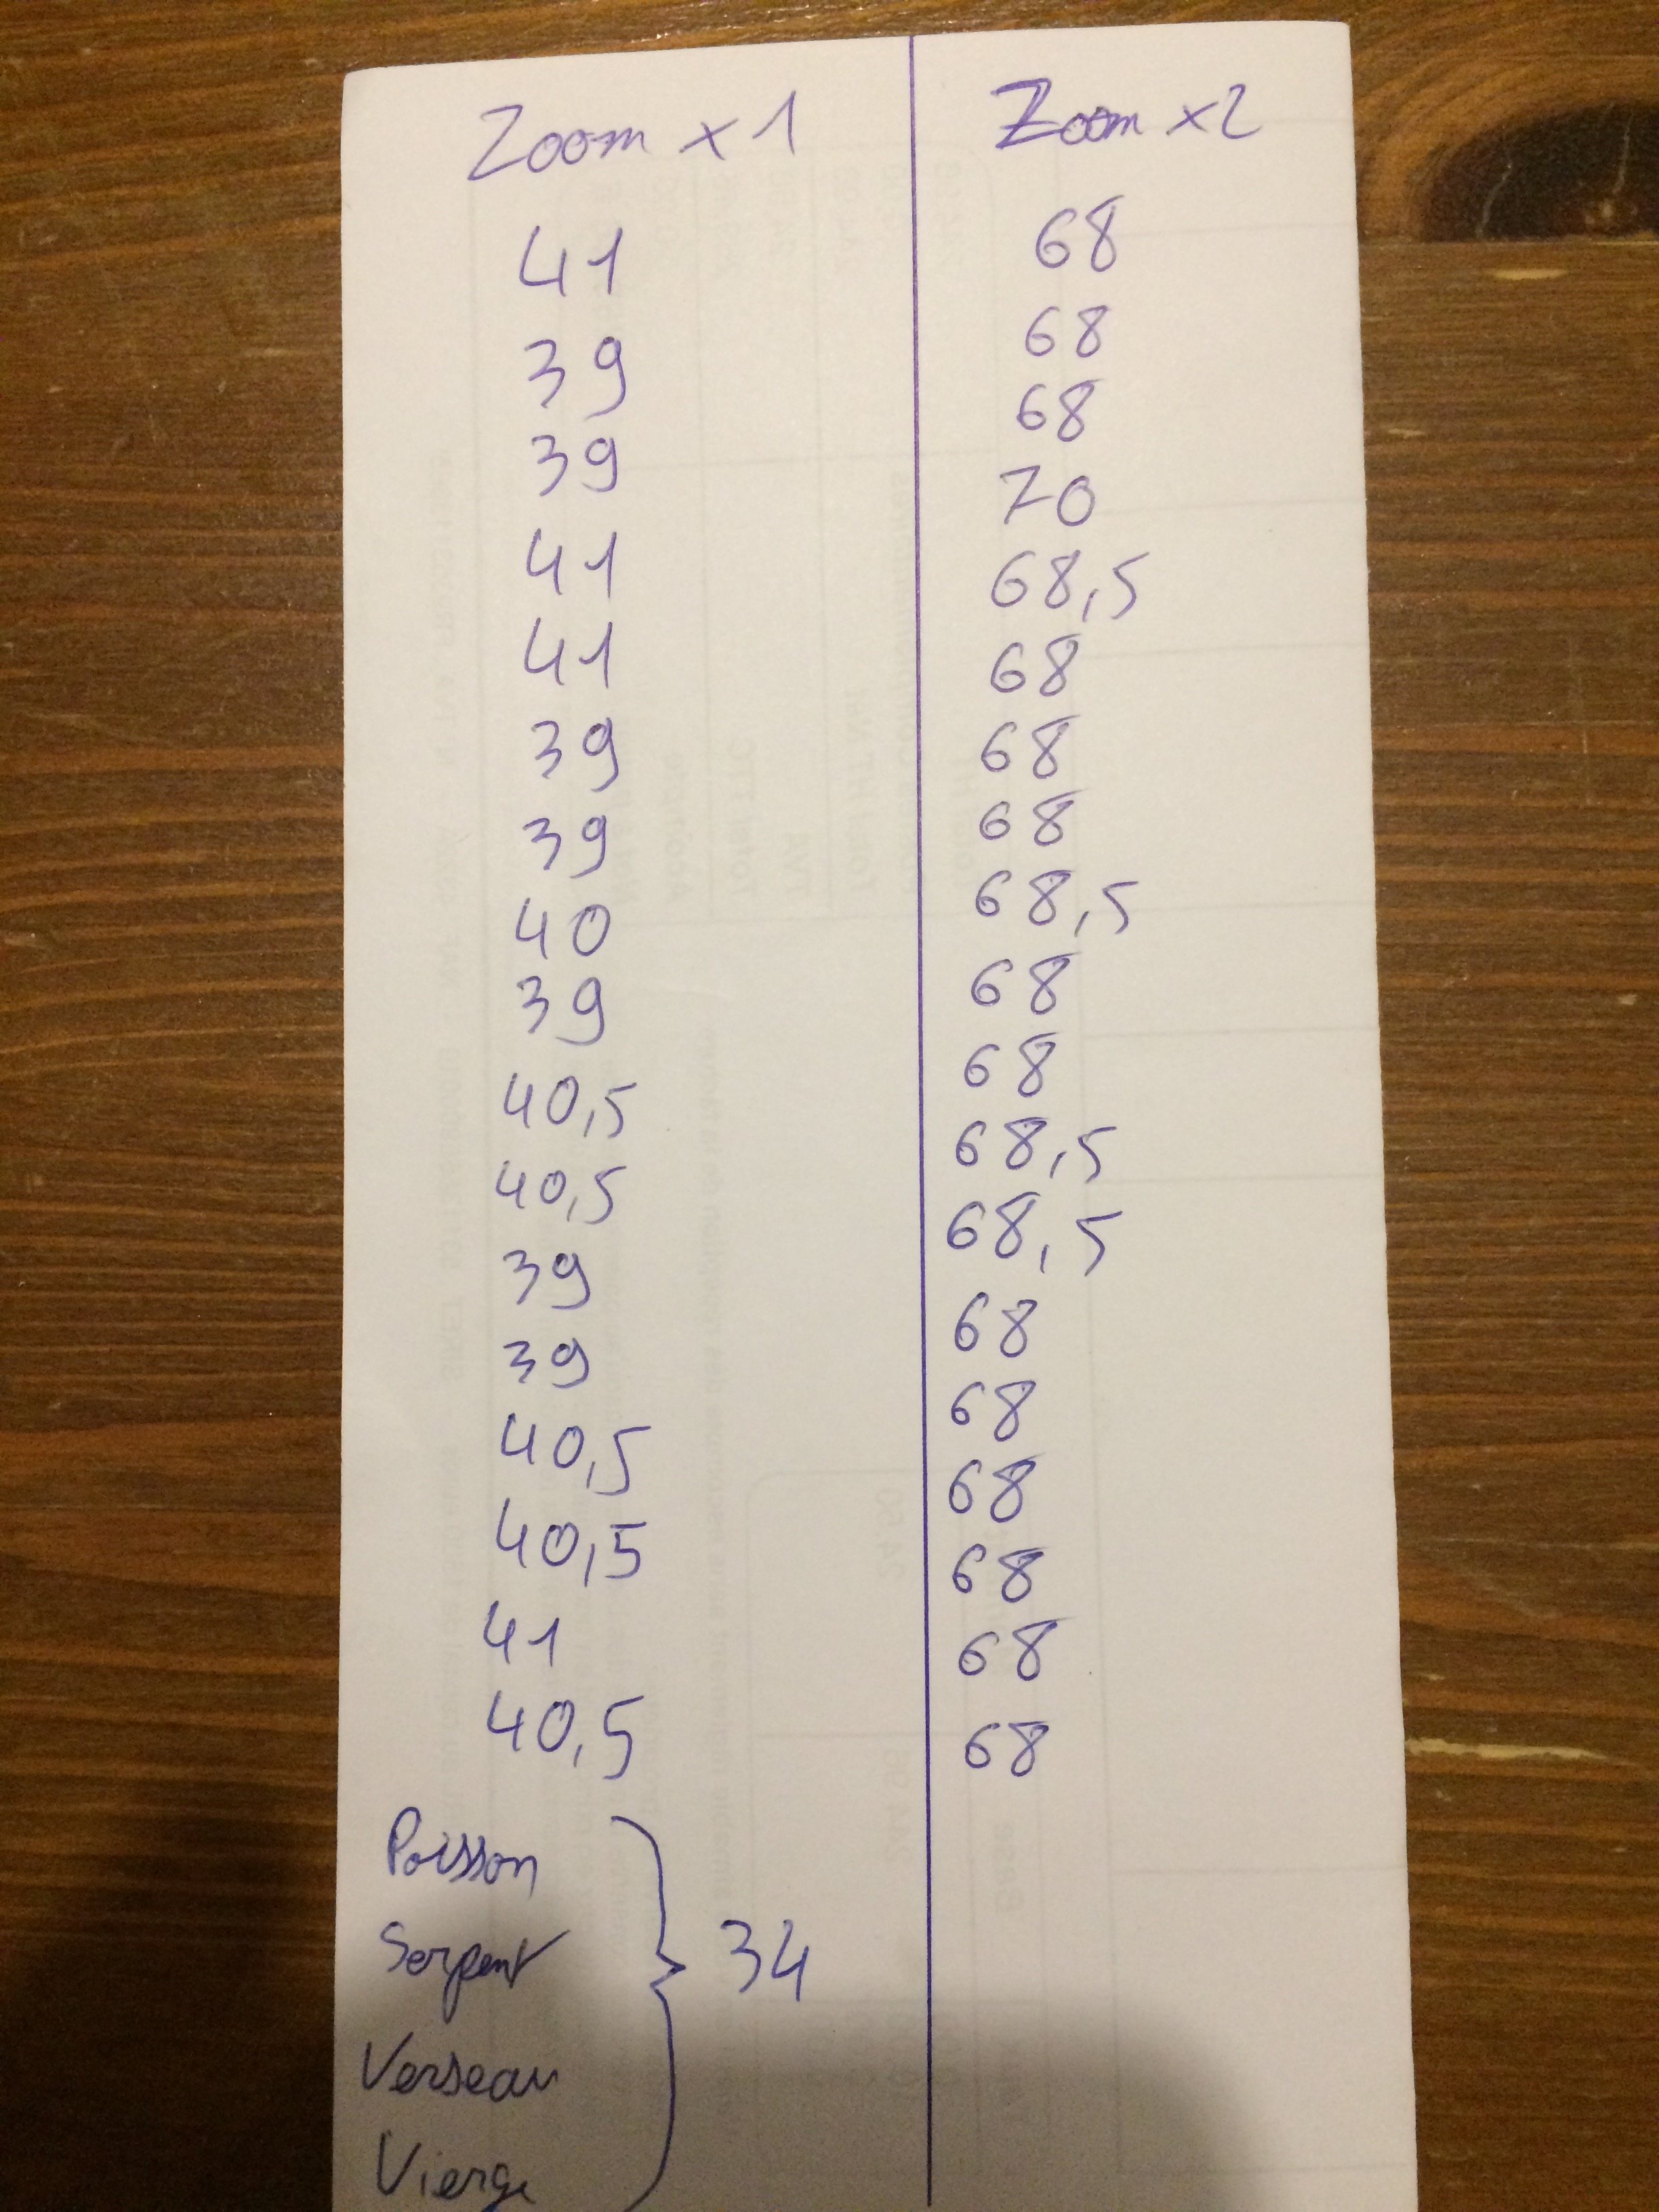 Zoom x 1
41
39
39
41
41
39
39
40
39
40,5
40,5
39
39
40,5
40,5
41
40,5
Poisson
Serpent
Verseau
Vierge
34
Zoom x2
68
68
68
70
68,5
68
68
68
68,5
68
68
68,5
68,5
68
68
68
68
68
68